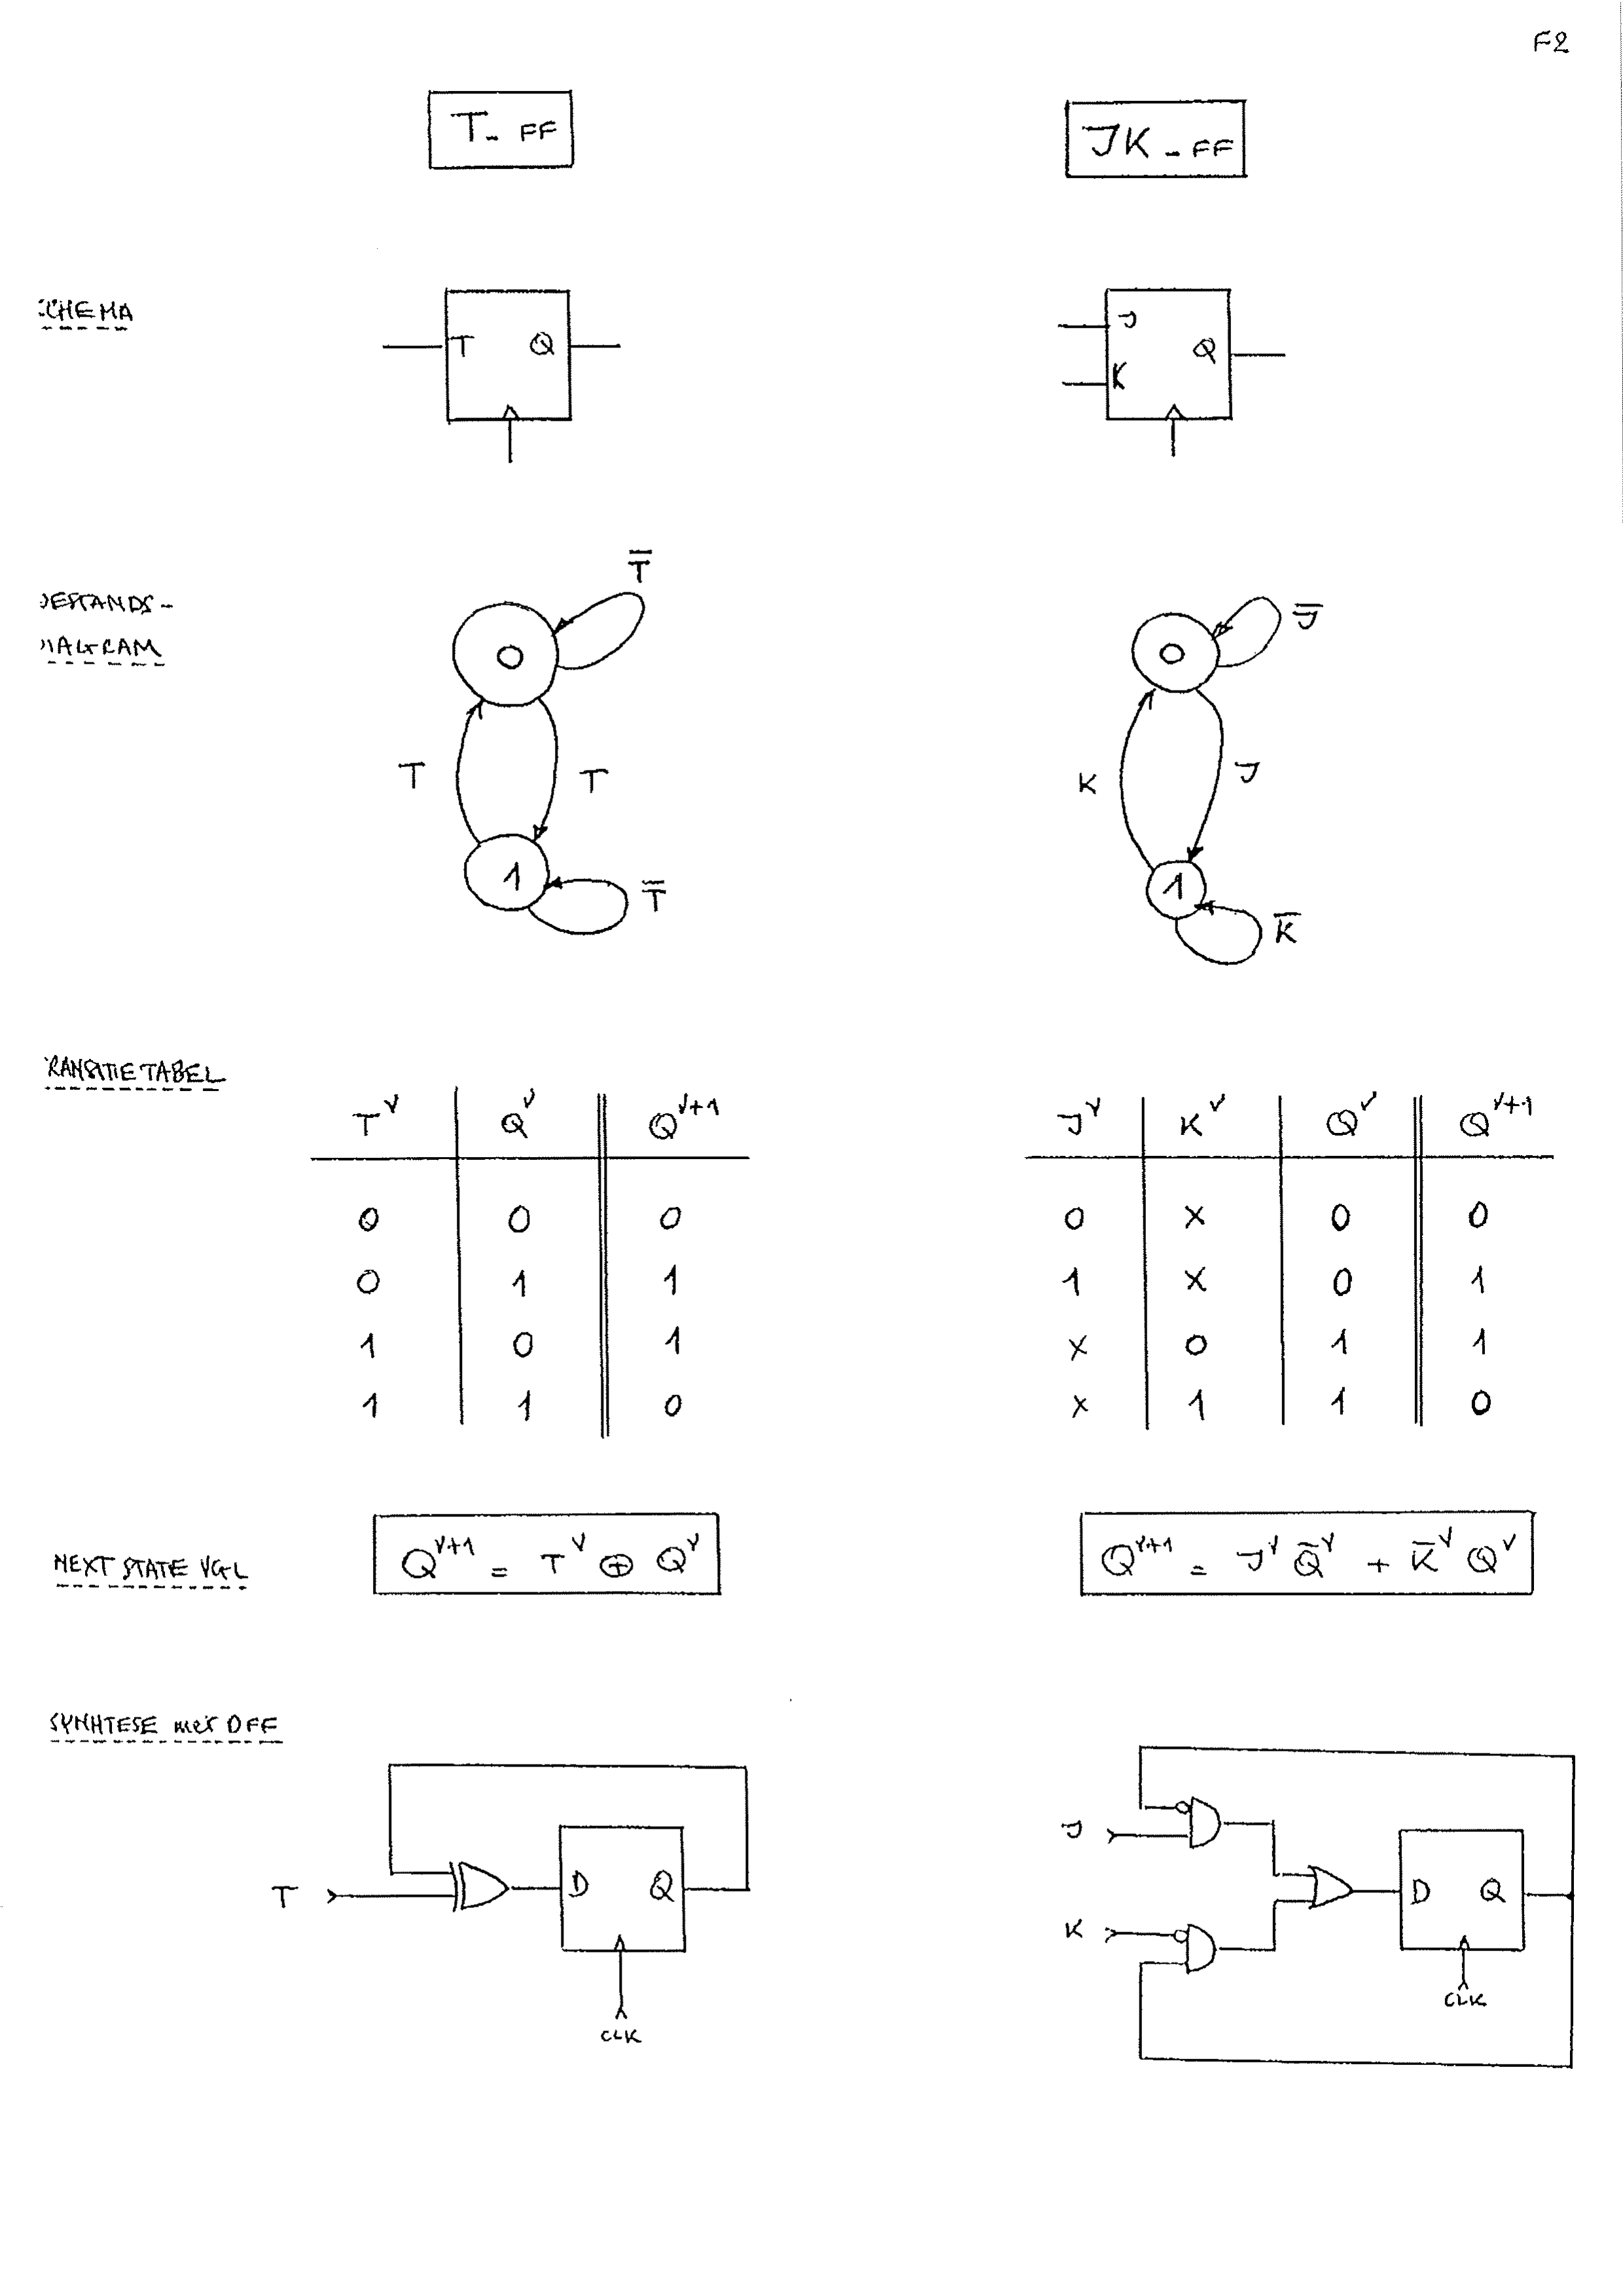 F2
T- FF
JK - FF
CHEMA
T Q
J
K Q
OESTANDS-
DIAGRAM
T̅
0
T T
1
T̅
J̅
0
K J
1
K̅
RANSITIETABEL
T^ν Q^ν Q^ν+1
0 0 0
0 1 1
1 0 1
1 1 0
J^ν K^ν Q^ν Q^ν+1
0 x 0 0
1 x 0 1
x 0 1 1
x 1 1 0
NEXT STATE VGL
Q^ν+1 = T^ν ⊕ Q^ν
Q^ν+1 = J^ν Q̅^ν + K̅^ν Q^ν
SYNHTESE met DFF
T D Q
CLK
J
K D Q
CLK